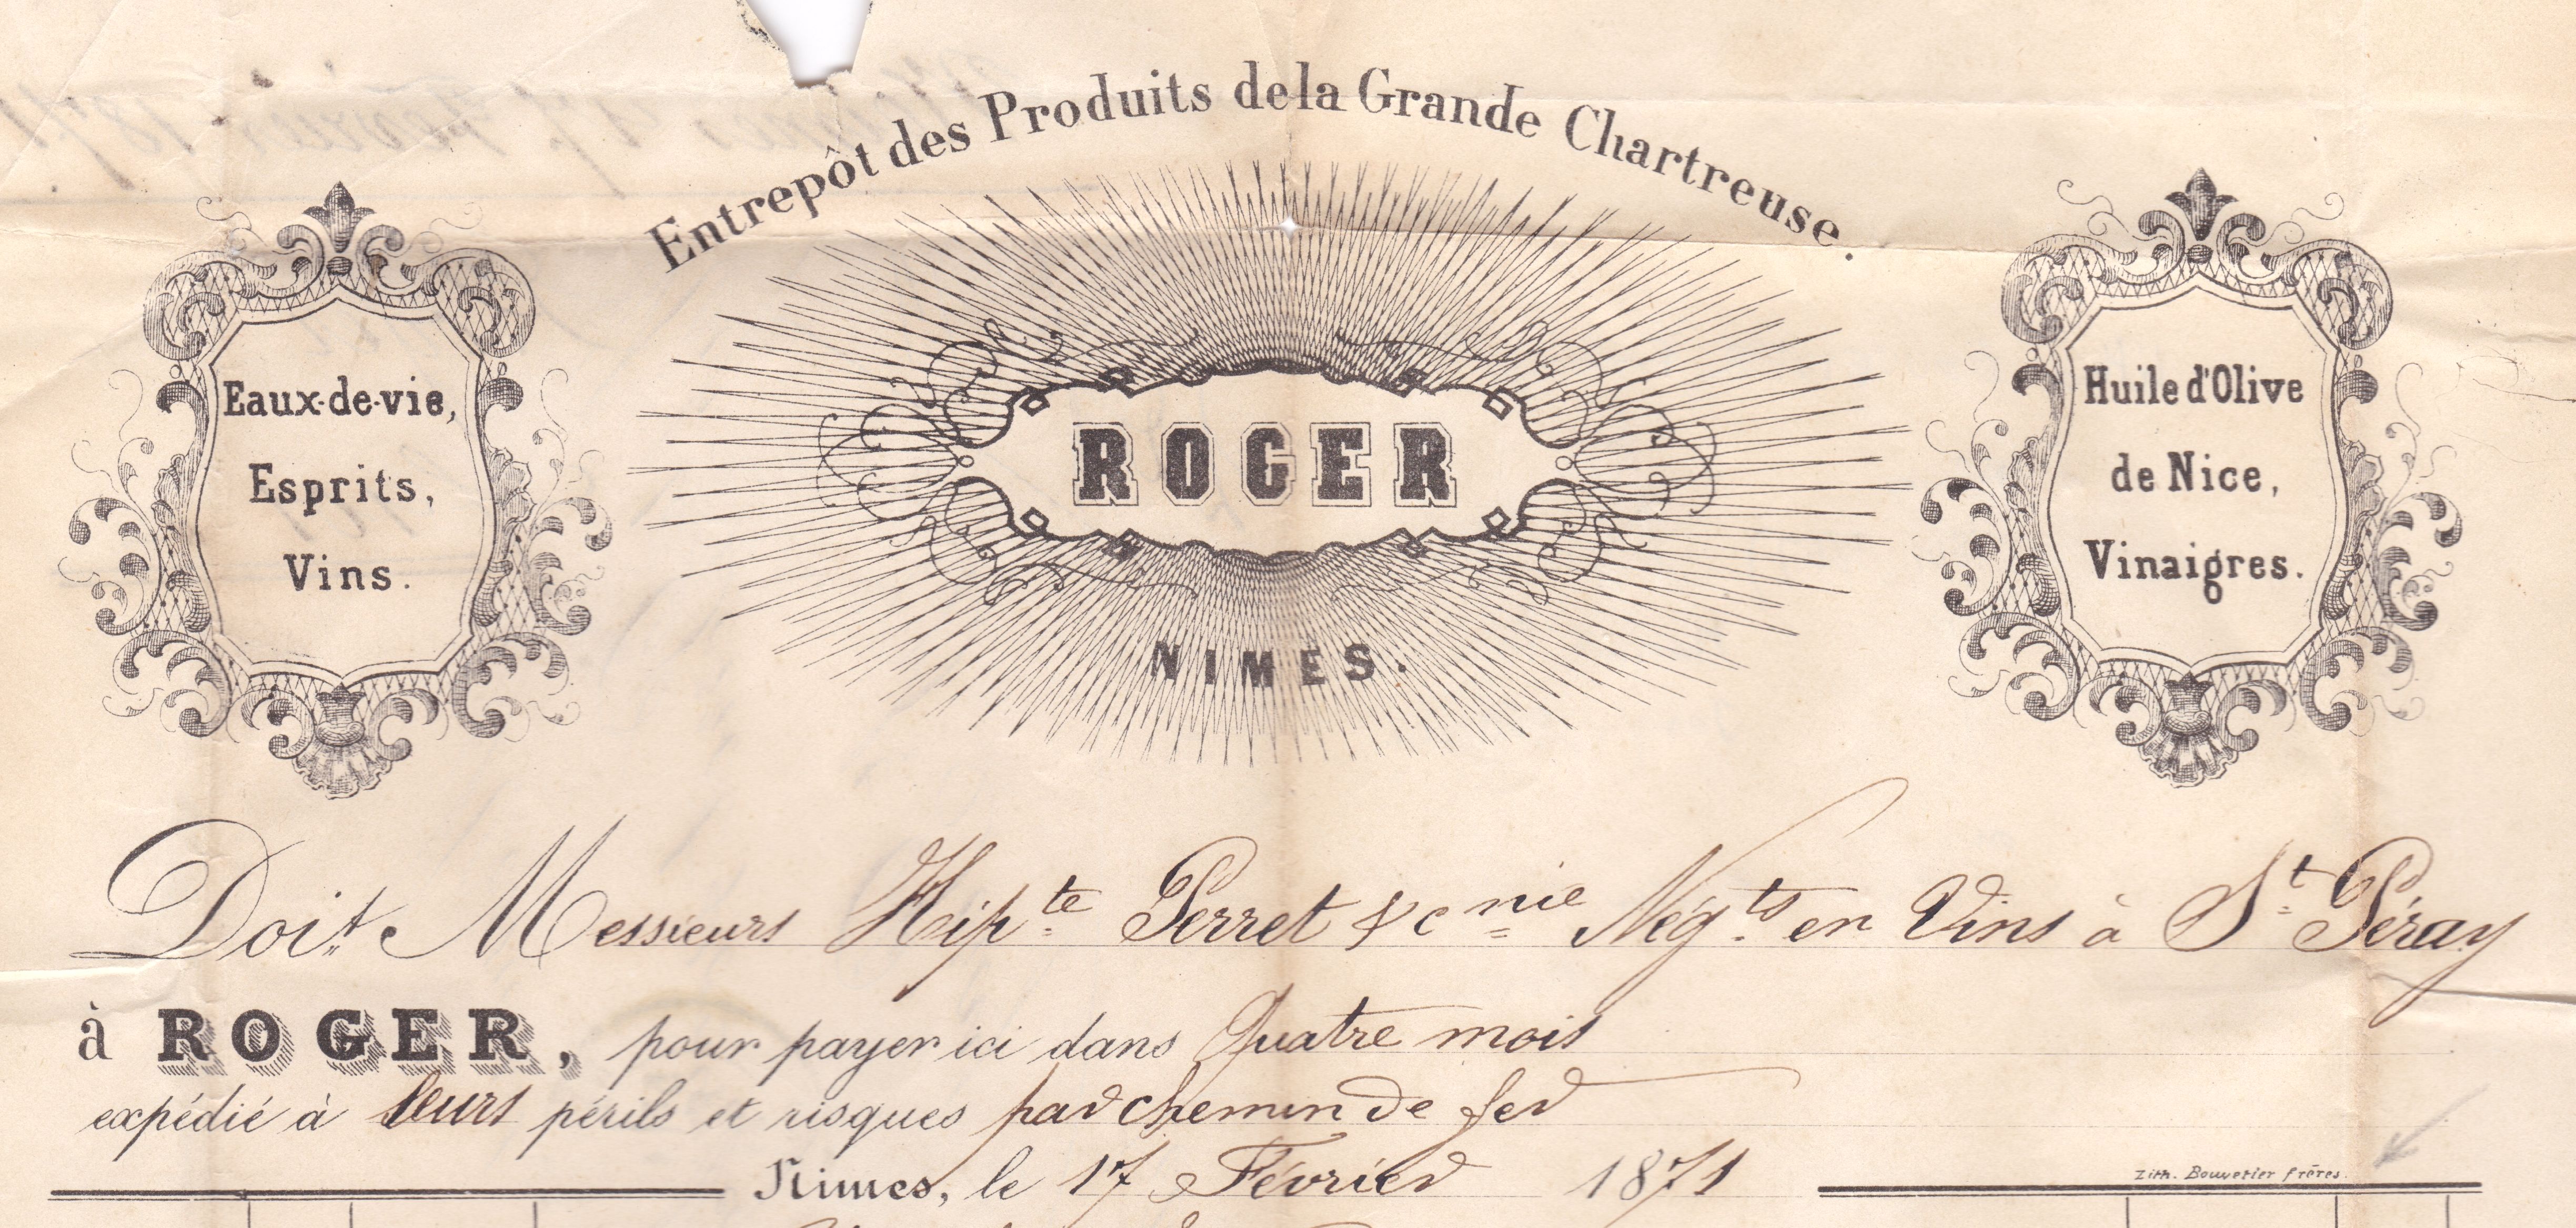 Entrepôt des Produits de la Grande Chartreuse.
Eaux-de-vie,
Esprits,
Vins.
ROGER
NIMES.
Huile d'Olive
de Nice,
Vinaigres.
Doit Messieurs Hip.te Perret & cnie Nég.ts en Vins à St Péray
à ROGER, pour payer ici dans Quatre mois
expédié à leurs périls et risques par chemin de fer
Nimes, le 17 Février 1871
Lith. Bouvetier frères.